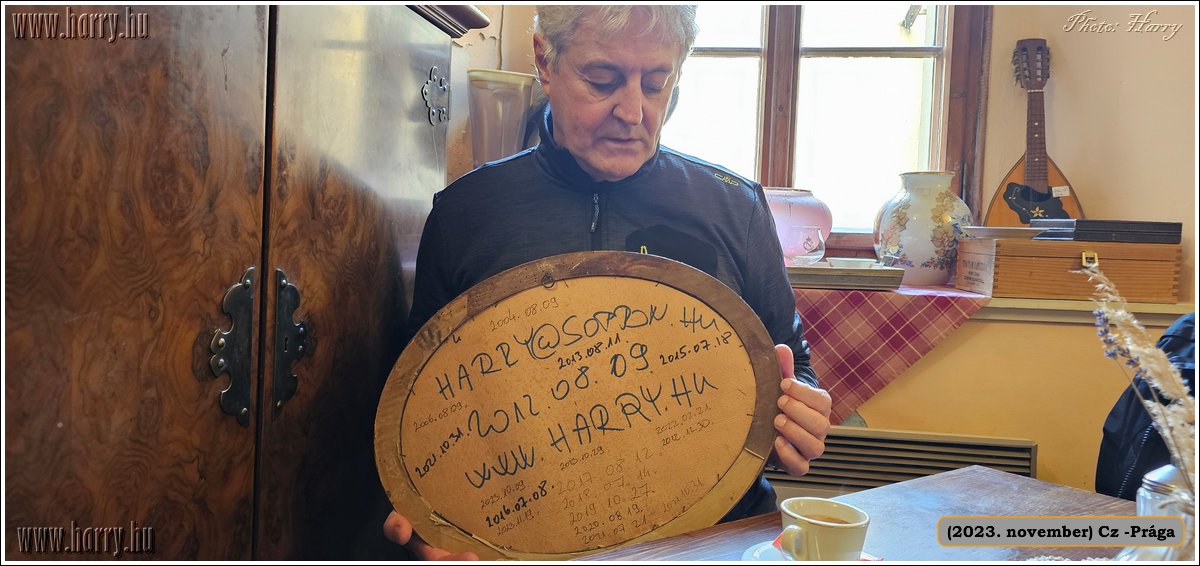 www.harry.hu
Photo: Harry
2004.08.09
HARRY@SOPRON.HU
2013.08.11.
2012.08.09.
2015.07.18
2006.08.09.
2021.10.31.
WWW.HARRY.HU
2022.02.21
2012.12.30.
2013.10.29
2017 08 12
2018. 07. 14.
2019 10 27.
2020.08.19.
2021.07.21
2016.07.08.
www.harry.hu
(2023. november) Cz -Prága